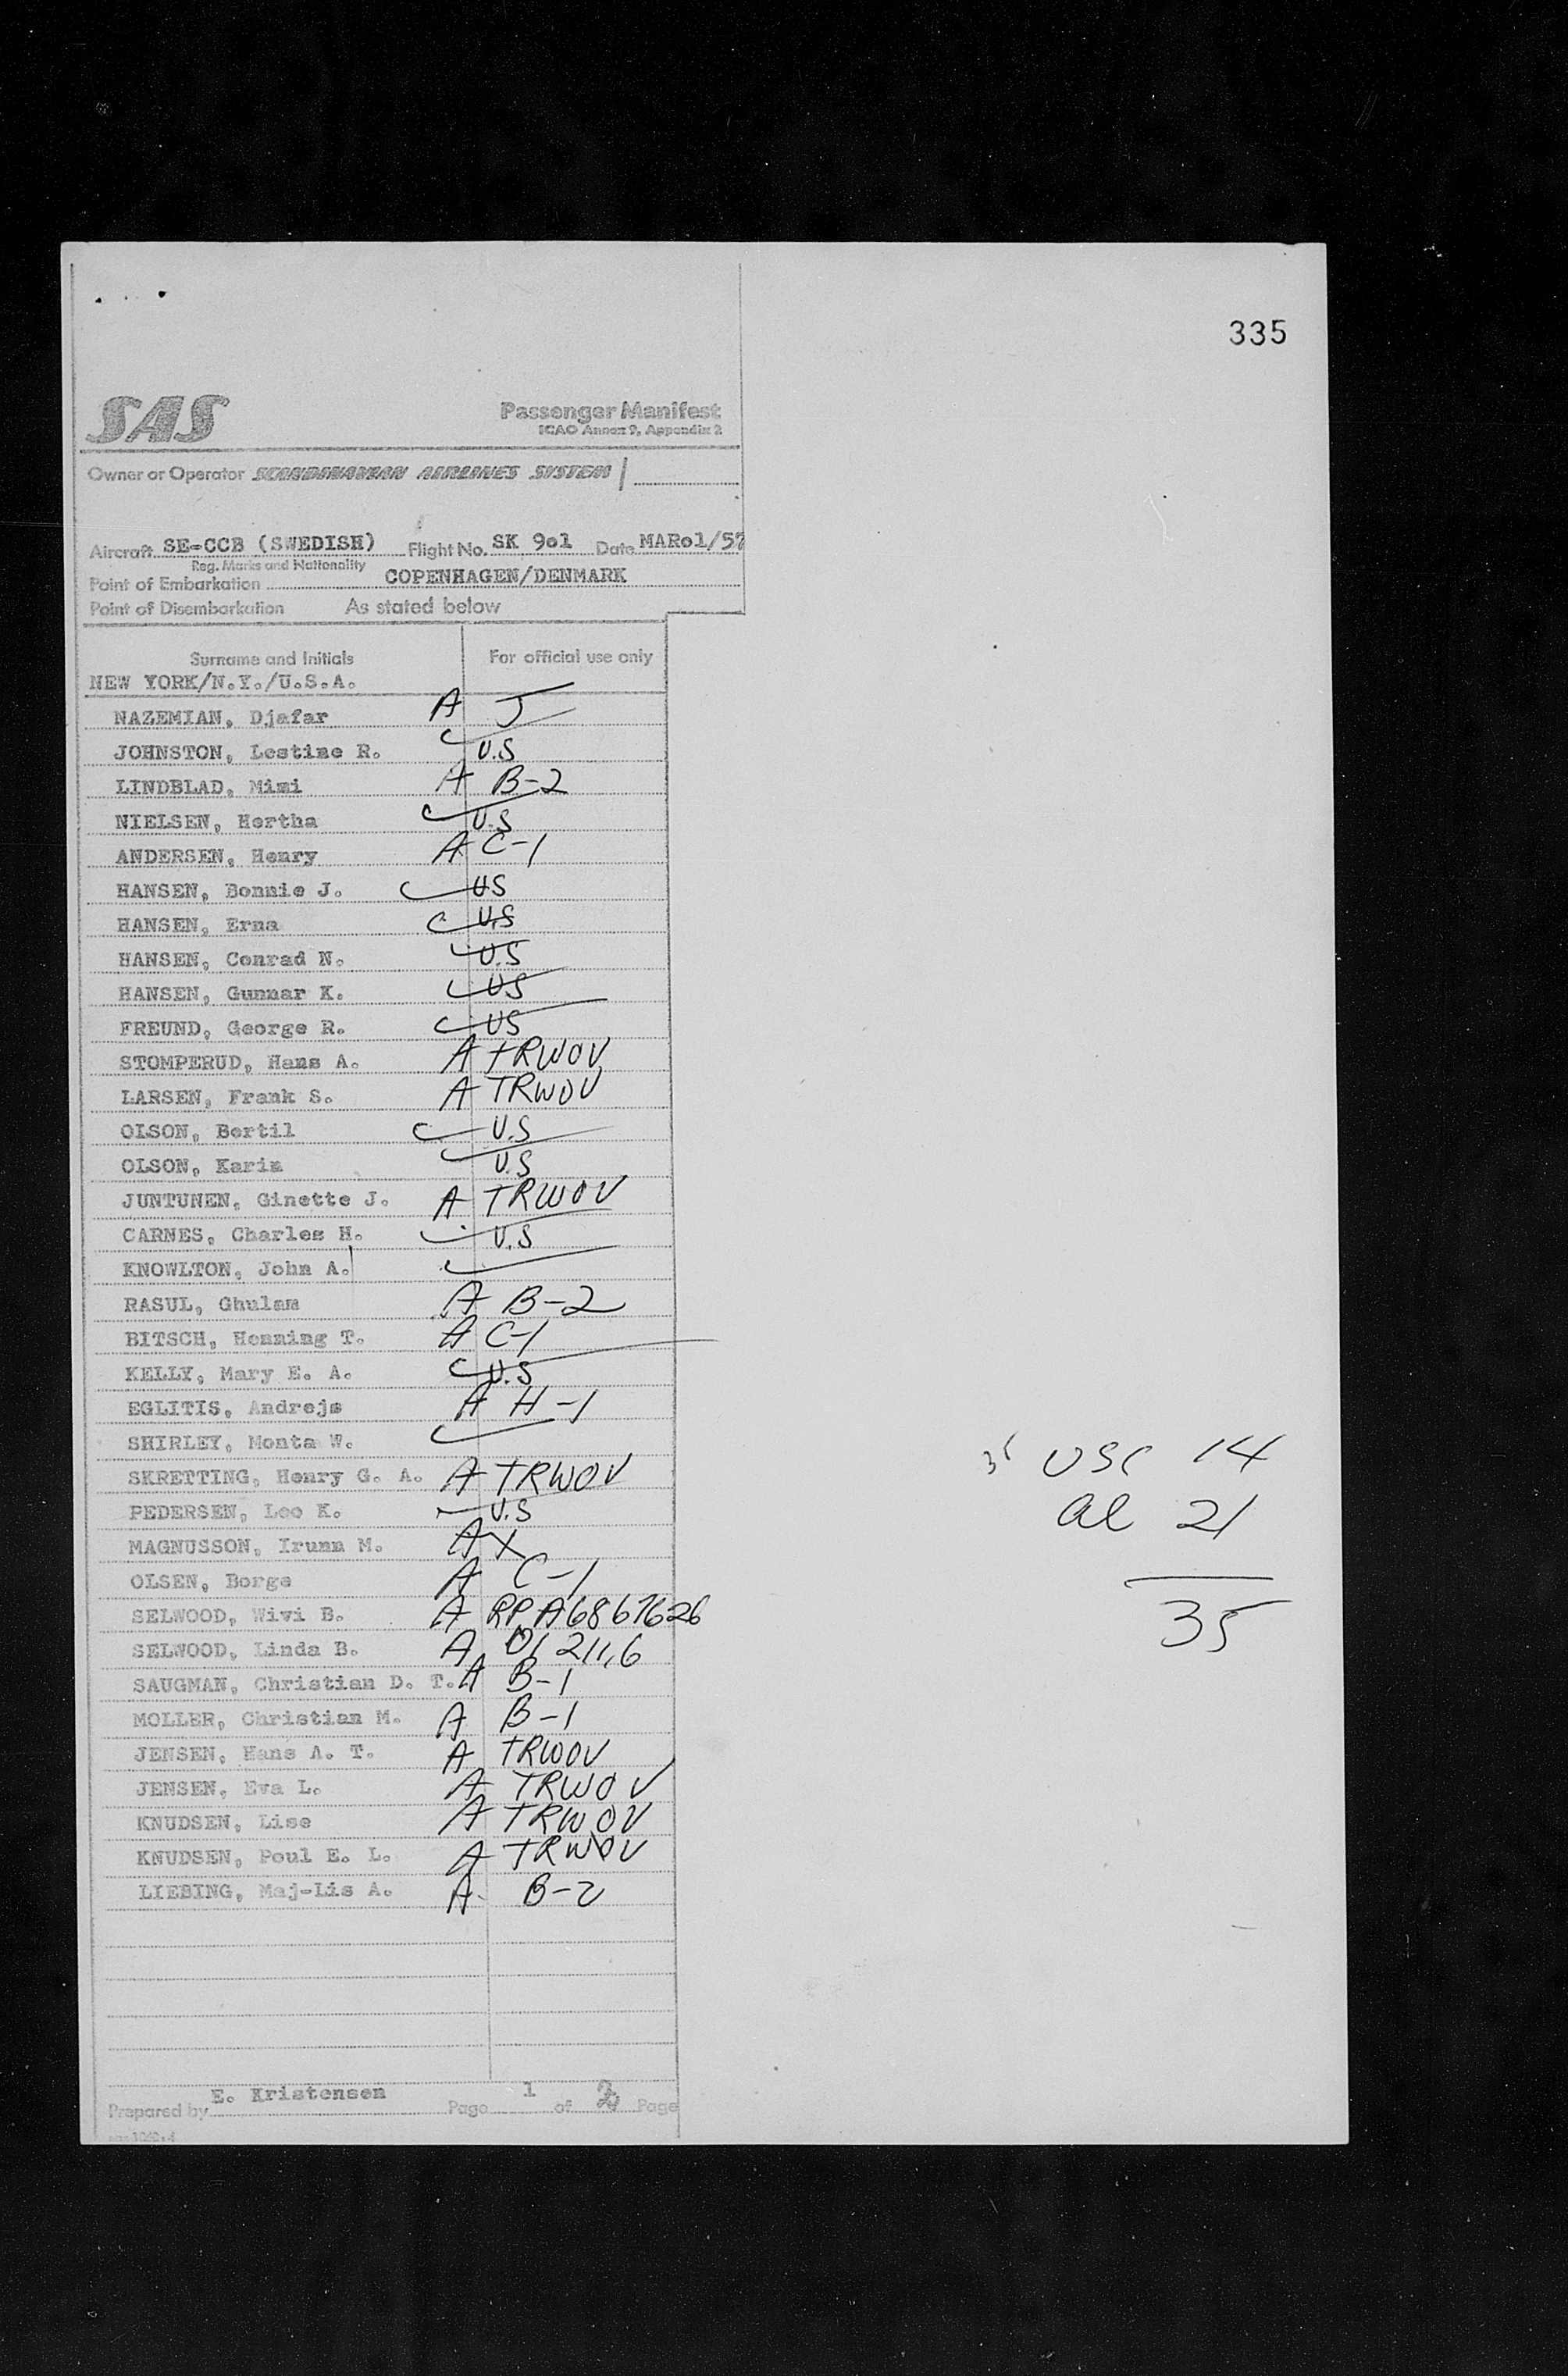 335
SAS
Passenger Manifest
ICAO Annex 9, Appendix 2
Owner or Operator SCANDINAVIAN AIRLINES SYSTEM
Aircraft SE-CCB (SWEDISH) Flight No. SK 9o1 Date MARo1/57
Reg. Marks and Nationality
Point of Embarkation COPENHAGEN/DENMARK
Point of Disembarkation As stated below
Surname and Initials For official use only
NEW YORK/N.Y./U.S.A.
NAZEMIAN, Djafar A J
JOHNSTON, Lestine R. U.S
LINDBLAD, Mimi A B-2
NIELSEN, Hertha U.S
ANDERSEN, Henry A C-1
HANSEN, Bonnie J. US
HANSEN, Erna U.S
HANSEN, Conrad N. U.S
HANSEN, Gunnar K. US
FREUND, George R. US
STOMPERUD, Hans A. A TRWOV
LARSEN, Frank S. A TRWOV
OLSON, Bertil U.S
OLSON, Karin U.S
JUNTUNEN, Ginette J. A TRWOV
CARNES, Charles H. U.S
KNOWLTON, John A.
RASUL, Ghulam A B-2
BITSCH, Henning T. A C-1
KELLY, Mary E. A. U.S
EGLITIS, Andrejs A H-1
SHIRLEY, Monta W.
SKRETTING, Henry G. A. A TRWOV
PEDERSEN, Leo K. U.S
MAGNUSSON, Irunn M. A X
OLSEN, Borge A C-1
SELWOOD, Wivi B. A RP A6867626
SELWOOD, Linda B. A 211.6
SAUGMAN, Christian D. T. A B-1
MOLLER, Christian M. A B-1
JENSEN, Hans A. T. A TRWOV
JENSEN, Eva L. A TRWOV
KNUDSEN, Lise A TRWOV
KNUDSEN, Poul E. L. A TRWOV
LIEBING, Maj-Lis A. A B-2
USC 14
al 21
35
Prepared by E. Kristensen Page 1 of 2 Page